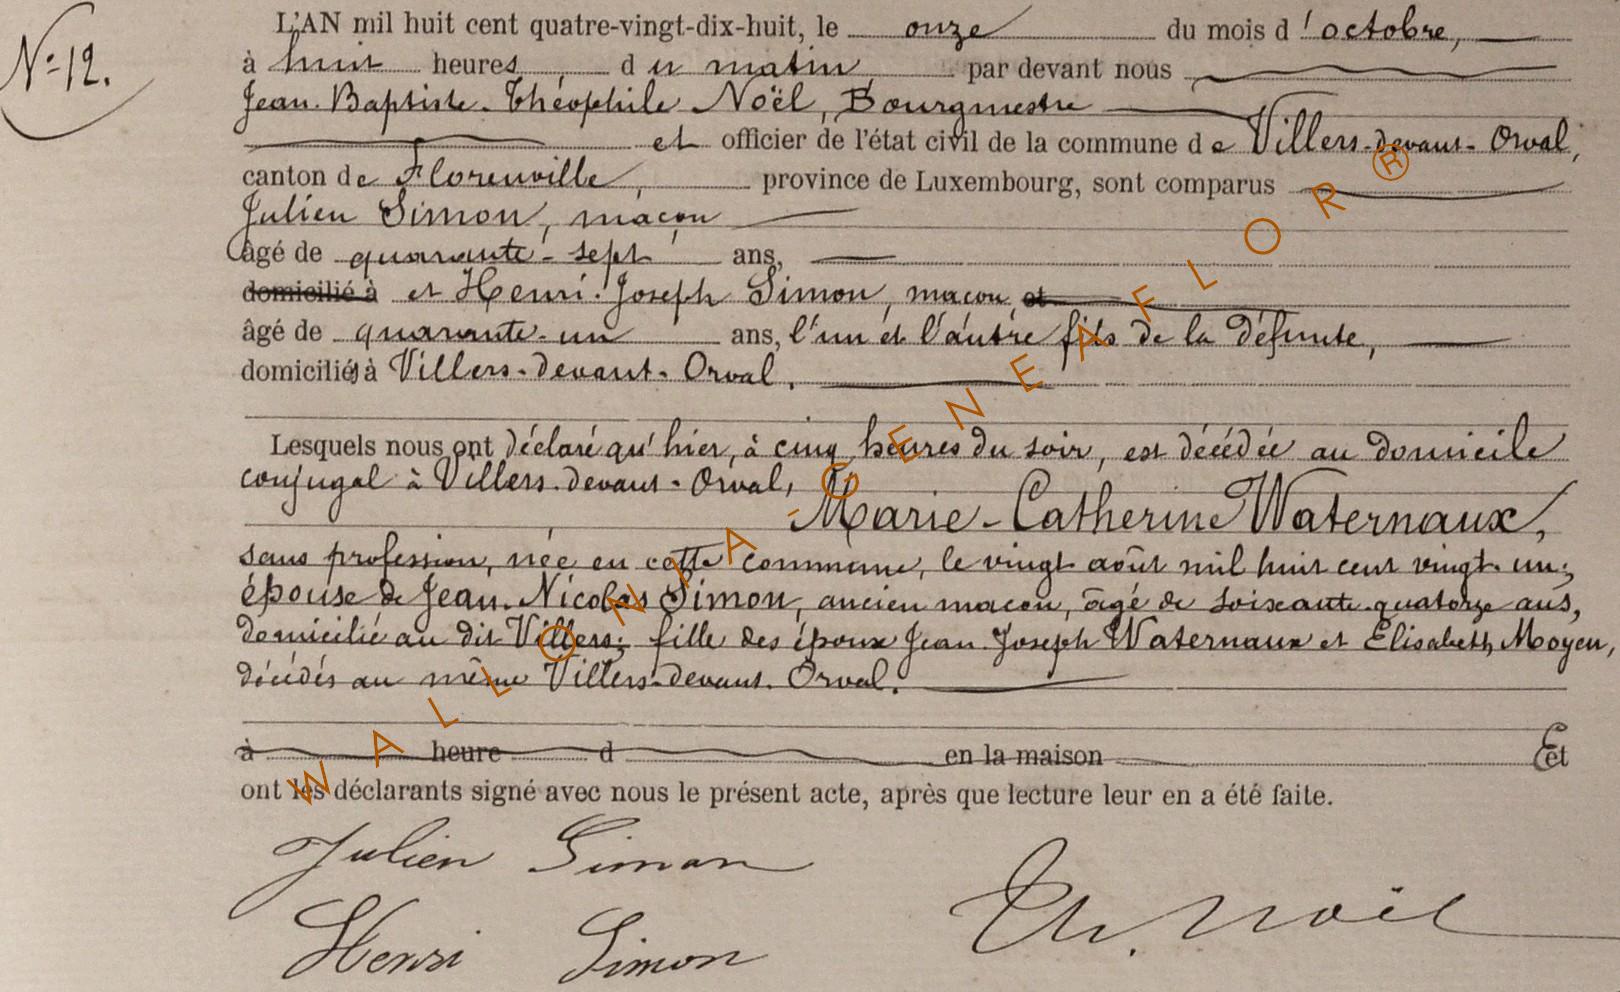 N° 12.
L'AN mil huit cent quatre-vingt-dix-huit, le onze du mois d'octobre,
à huit heures, du matin, par devant nous
Jean-Baptiste-Théophile Noël, Bourgmestre
et officier de l'état civil de la commune de Villers-devant-Orval,
canton de Florenville, province de Luxembourg, sont comparus
Julien Simon, maçon
âgé de quarante-sept ans,
domicilié à et Henri-Joseph Simon, maçon, et
âgé de quarante-un ans, l'un et l'autre fils de la défunte,
domiciliés à Villers-devant-Orval.
Lesquels nous ont déclaré qu'hier, à cinq heures du soir, est décédée au domicile
conjugal à Villers-devant-Orval,
Marie-Catherine Waternaux,
sans profession, née en cette commune, le vingt août mil huit cent vingt-un;
épouse de Jean-Nicolas Simon, ancien maçon, âgé de soixante-quatorze ans,
domicilié au dit Villers; fille des époux Jean-Joseph Waternaux et Elisabeth Moyen,
décédés au même Villers-devant-Orval.
à heure d en la maison Et
ont les déclarants signé avec nous le présent acte, après que lecture leur en a été faite.
Julien Simon
Henri Simon
Th. Noël
WALLONIA-GENEAFLOR®